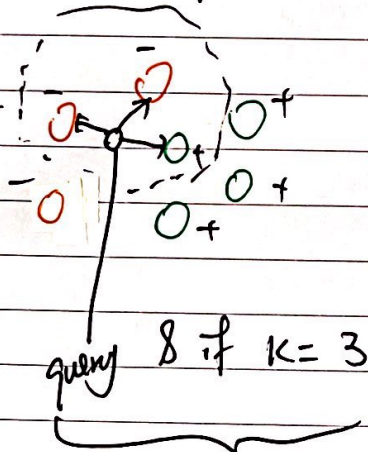 -
- +
+
- +
+
query & if K = 3